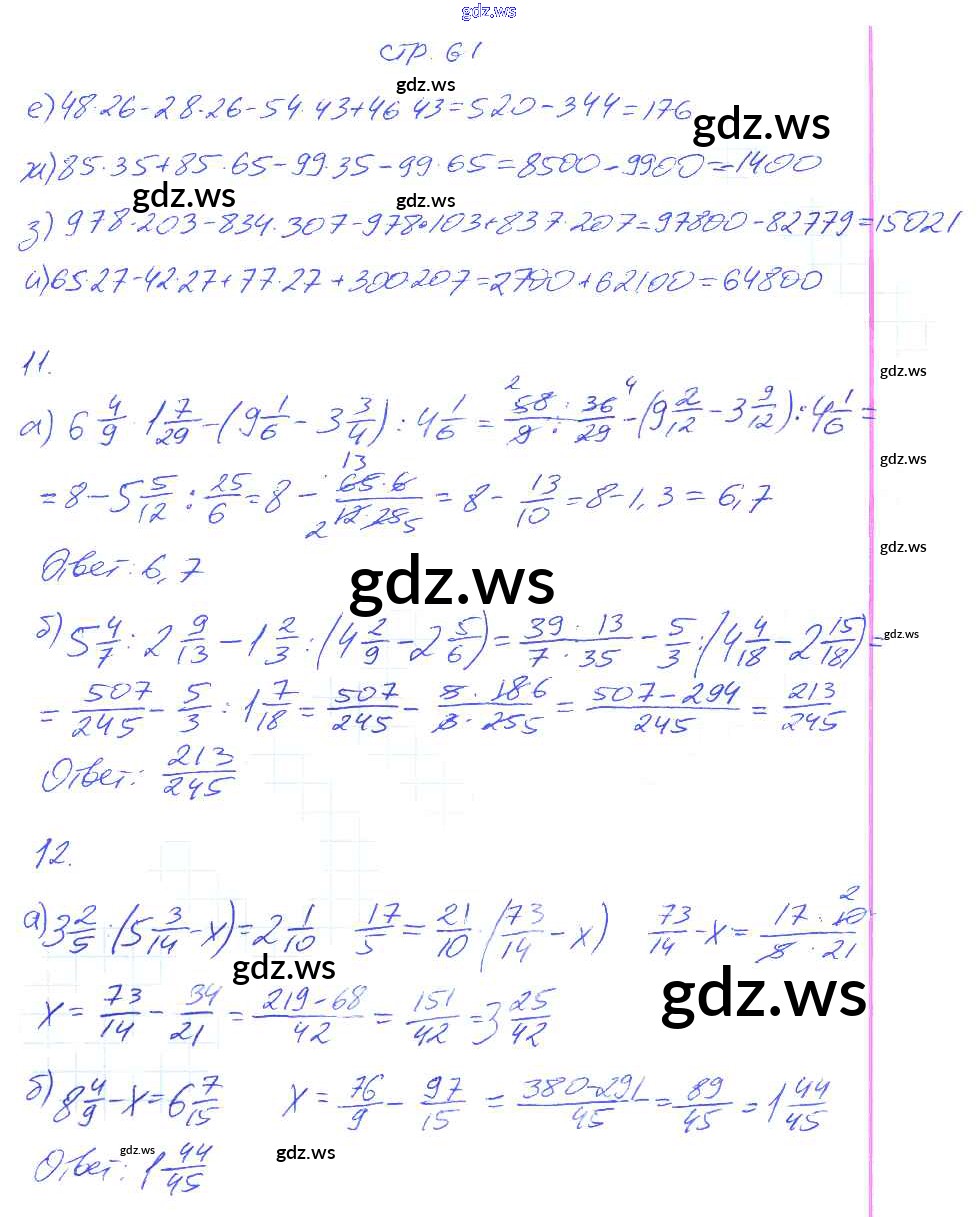 gdz.ws
стр. 61
gdz.ws
е) 48·26-28·26-54·43+46·43=520-344=176
gdz.ws
ж) 85·35+85·65-99·35-99·65=8500-9900=-1400
gdz.ws gdz.ws
з) 978·203-834·307-978·103+837·207=97800-82779=15021
и) 65·27-42·27+77·27+300·207=2700+62100=64800
11.
gdz.ws
а) 6 4/9 · 1 7/29 - (9 1/6 - 3 3/4) : 4 1/6 = 2 58 : 36 4 / 9 : 29 - (9 2/12 - 3 9/12) : 4 1/6 =
gdz.ws
= 8 - 5 5/12 : 25/6 = 8 - 13 65·6 / 2 12·25 5 = 8 - 13/10 = 8 - 1,3 = 6,7
gdz.ws
Ответ: 6,7
gdz.ws
б) 5 4/7 : 2 9/13 - 1 2/3 : (4 2/9 - 2 5/6) = 39·13 / 7·35 - 5/3 : (4 4/18 - 2 15/18) =
gdz.ws
= 507/245 - 5/3 : 1 7/18 = 507/245 - 5·18 6 / 3·25 5 = 507-294 / 245 = 213/245
Ответ: 213/245
12.
а) 3 2/5 : (5 3/14 - x) = 2 1/10 17/5 = 21/10 · (73/14 - x) 73/14 - x = 17·10 2 / 5·21
gdz.ws
gdz.ws
x = 73/14 - 34/21 = 219-68 / 42 = 151/42 = 3 25/42
б) 8 4/9 - x = 6 7/15 x = 76/9 - 97/15 = 380-291 / 45 = 89/45 = 1 44/45
gdz.ws gdz.ws
Ответ: 1 44/45